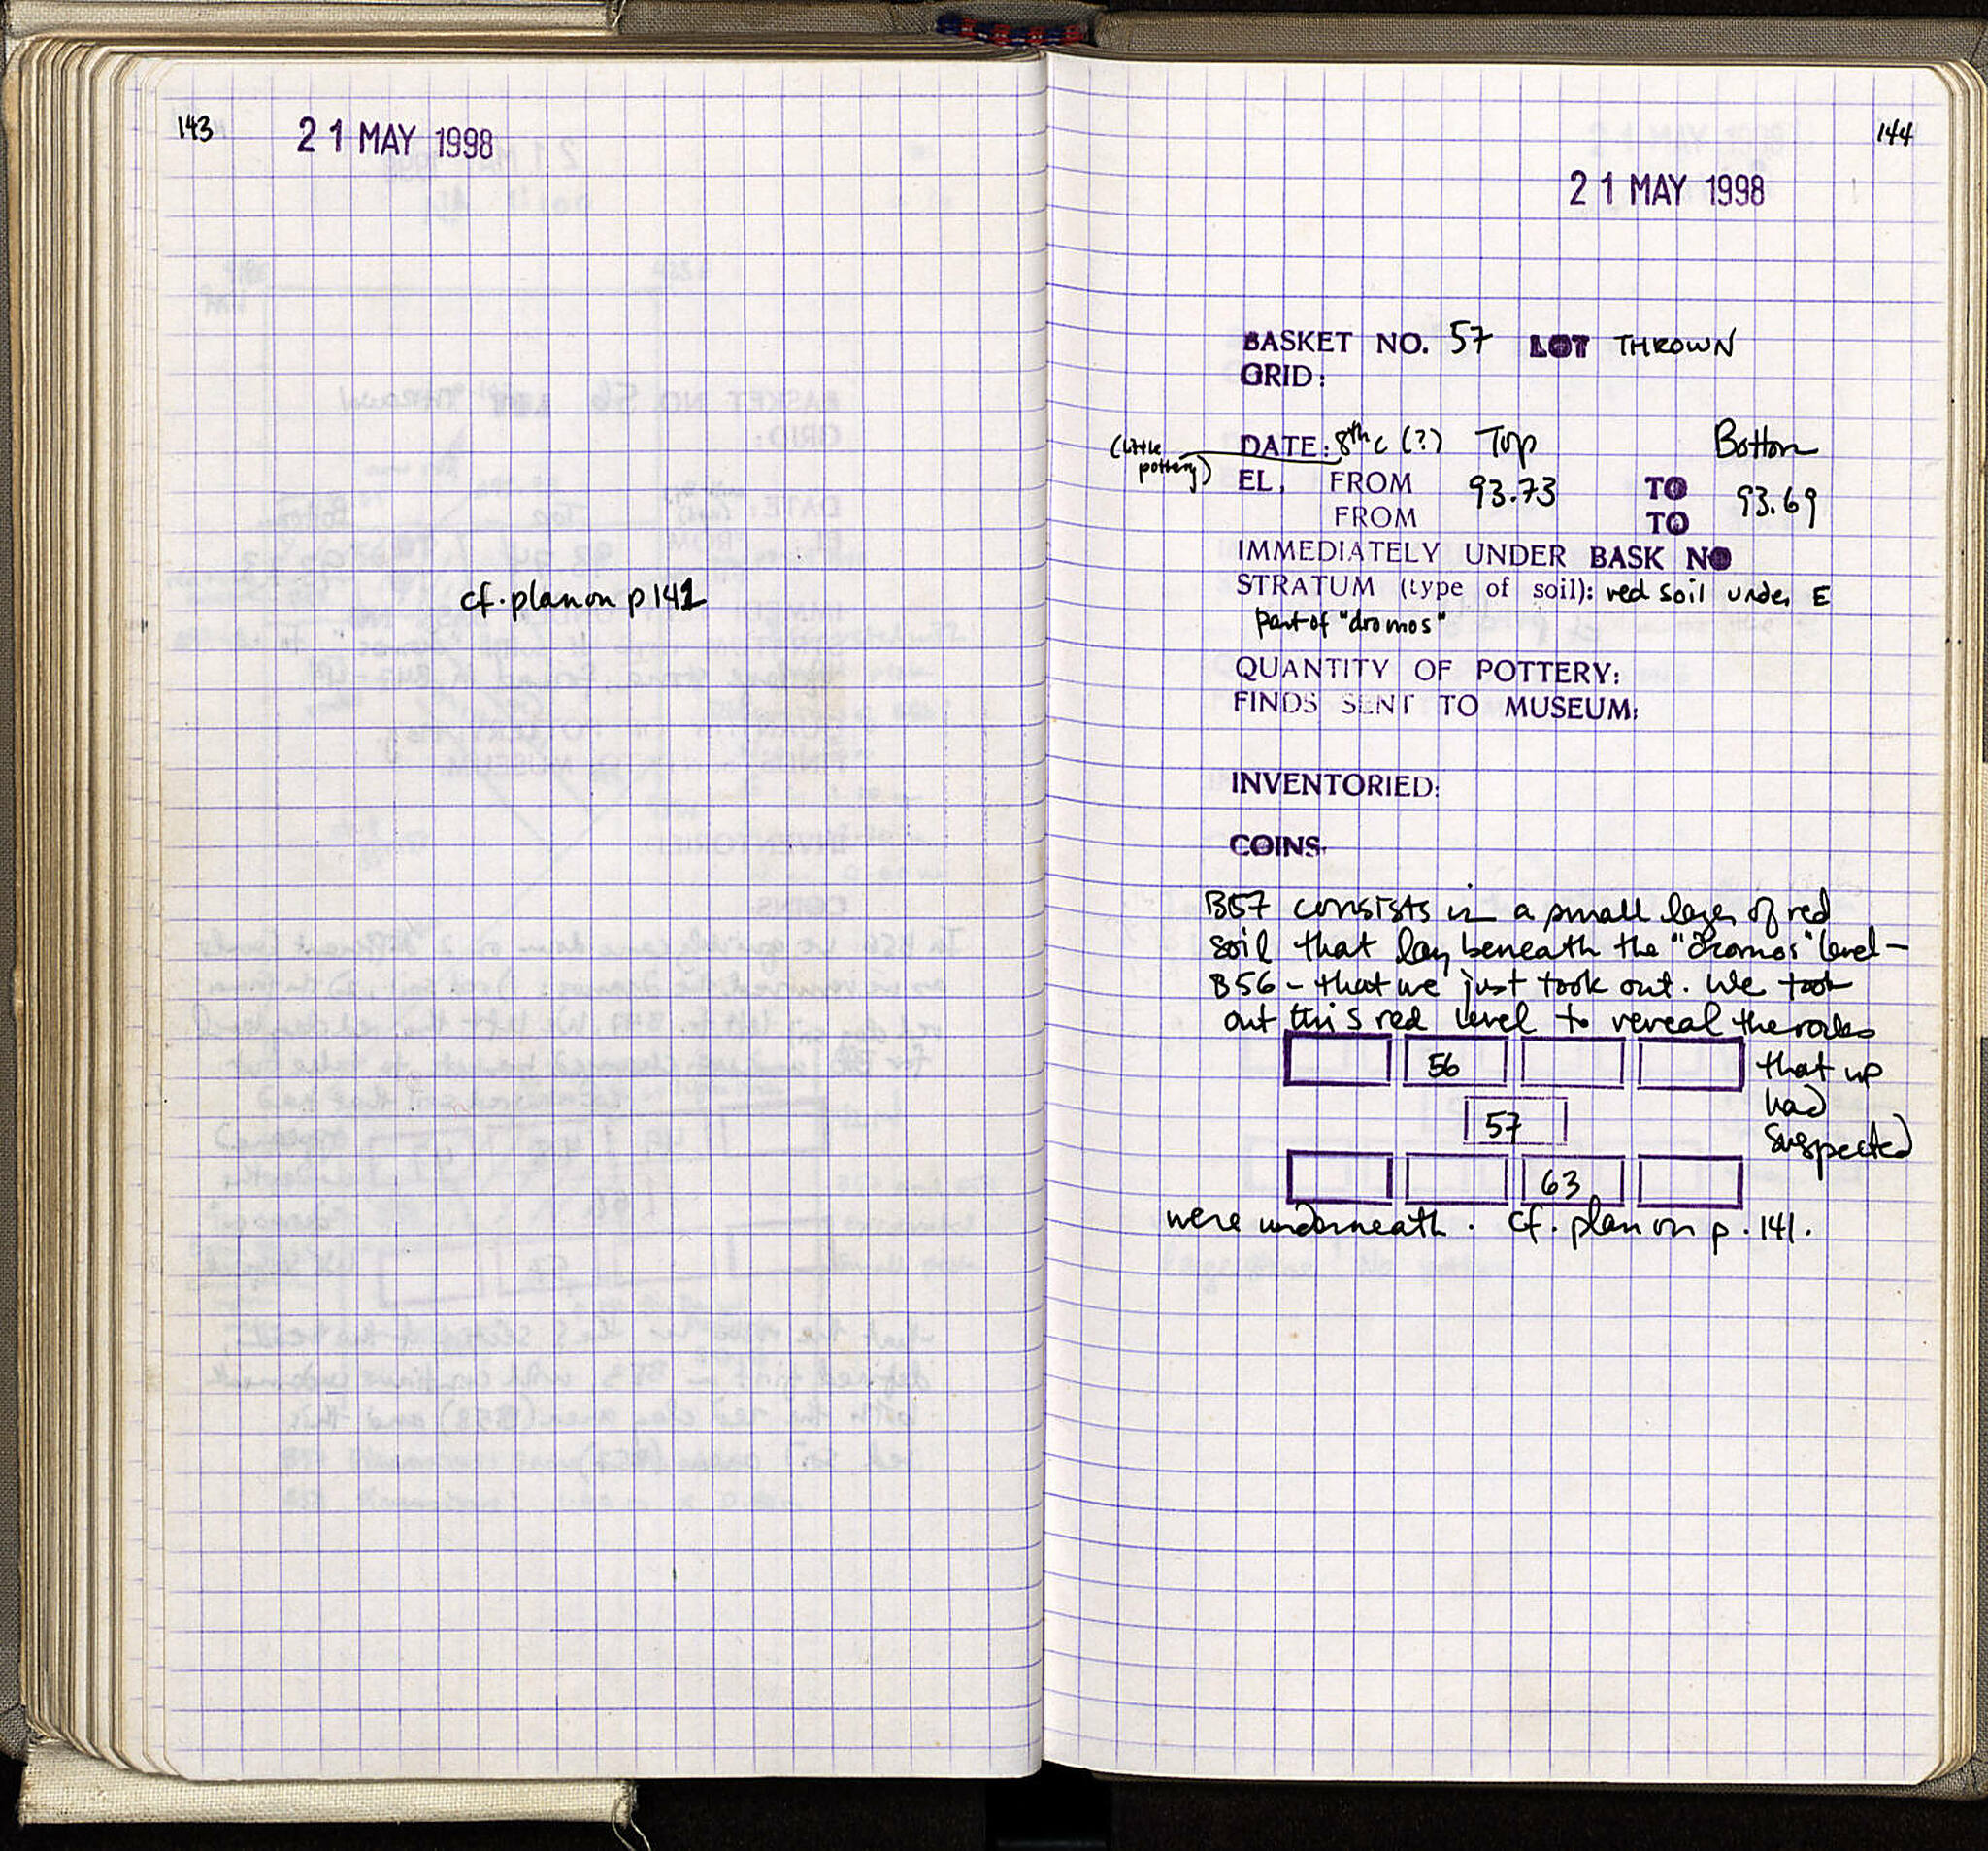 143
21 MAY 1998
cf. plan on p 141
144
21 MAY 1998
BASKET NO. 57 LOT THROWN
GRID:
(little pottery)
DATE: 8th c (?) Top Bottom
EL. FROM 93.73 TO 93.69
FROM TO
IMMEDIATELY UNDER BASK NO
STRATUM (type of soil): red soil under E
part of "dromos"
QUANTITY OF POTTERY:
FINDS SENT TO MUSEUM:
INVENTORIED:
COINS
B57 consists in a small layer of red
soil that lay beneath the "dromos" level –
B56 – that we just took out. We took
out this red level to reveal the rocks
56 that up
had
57
suspected
63
were underneath. cf. plan on p. 141.